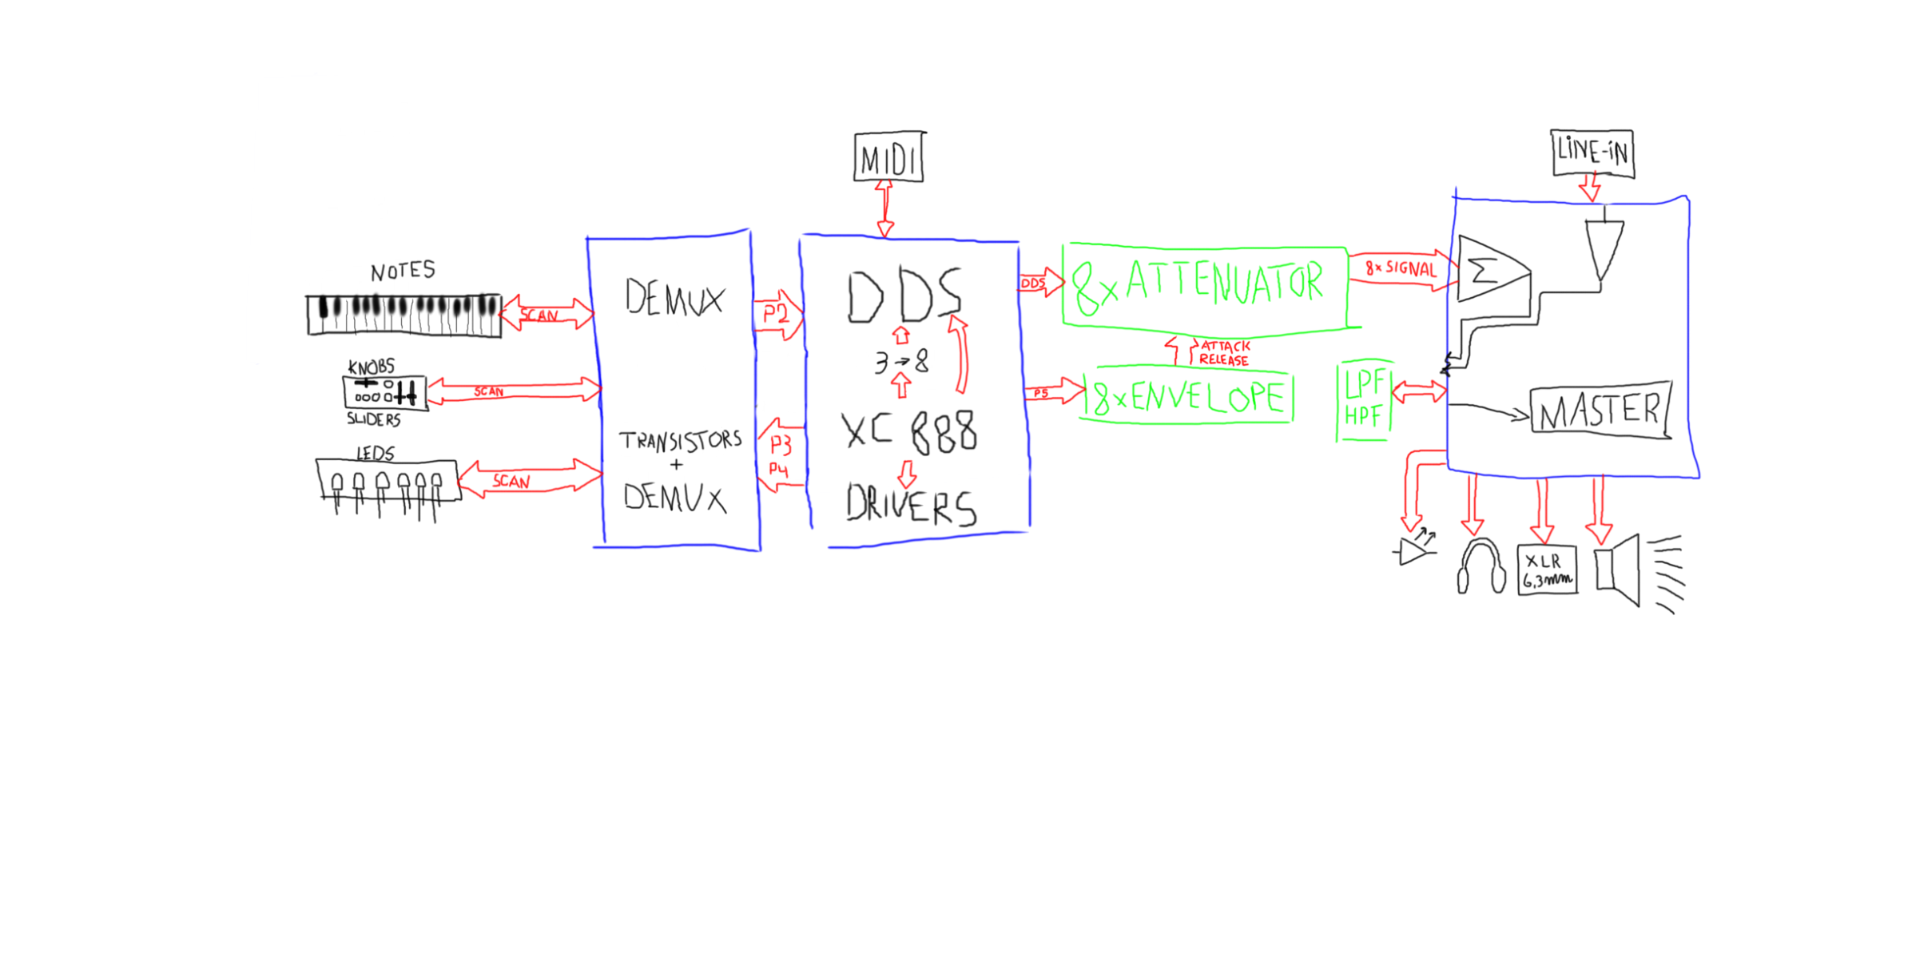 NOTES
SCAN
KNOBS
SLIDERS
SCAN
LEDS
SCAN
DEMUX
TRANSISTORS
+
DEMUX
P2
P3
P4
MIDI
DDS
3→8
XC 888
DRIVERS
DDS
P5
8x ATTENUATOR
ATTACK
RELEASE
8xENVELOPE
8xSIGNAL
LPF
HPF
LiNE-iN
Σ
MASTER
XLR
6,3mm